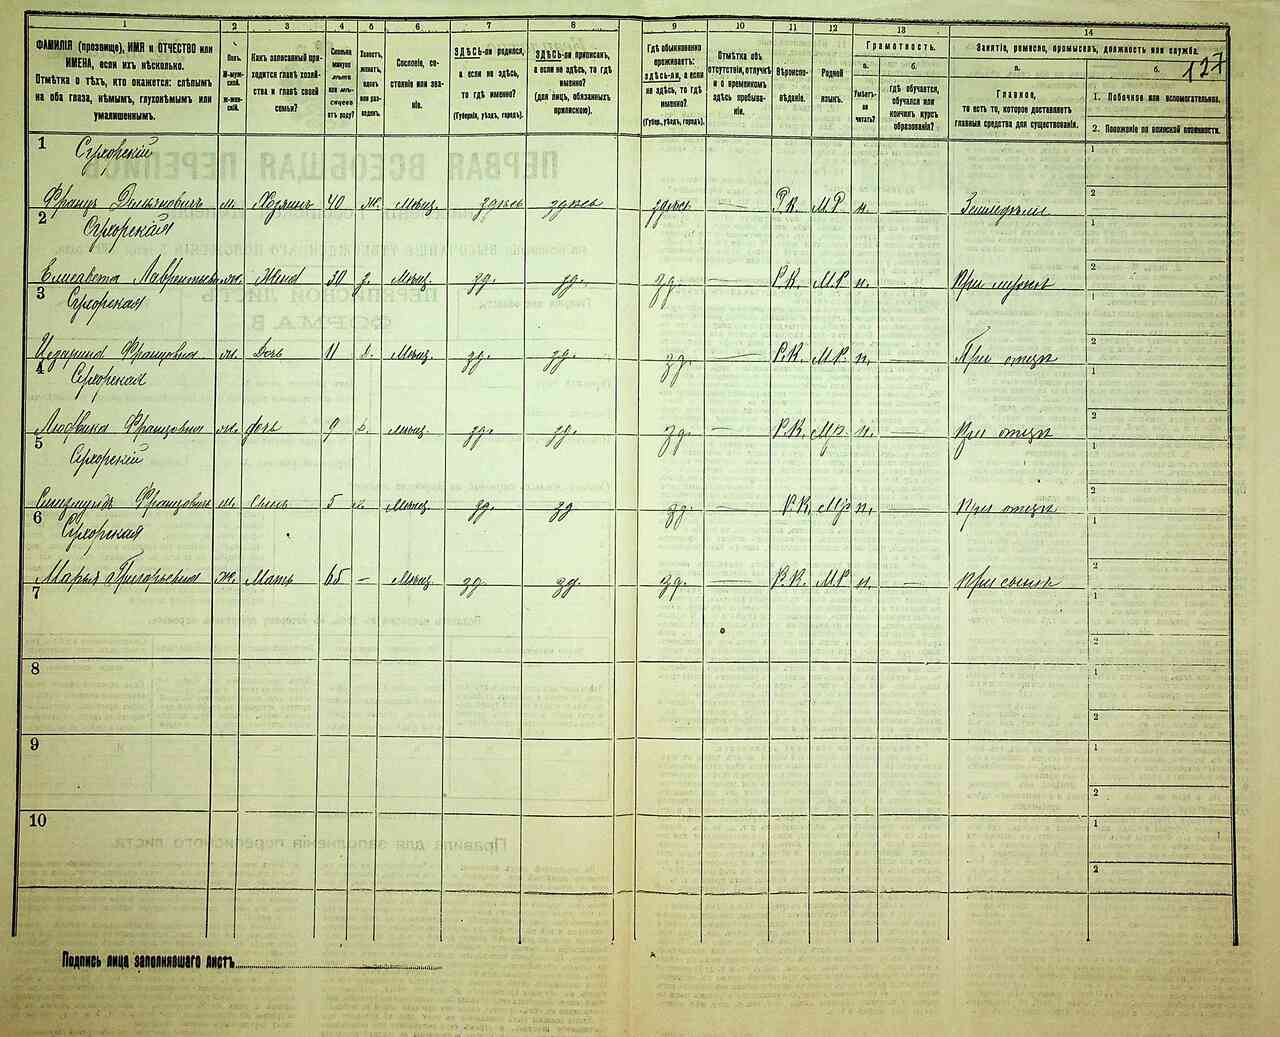 1 2 3 4 5 6 7 8 9 10 11 12 13 14
ФАМИЛІЯ (прозвище), ИМЯ и ОТЧЕСТВО или
ИМЕНА, если ихъ нѣсколько.
Отмѣтка о тѣхъ, кто окажется: слѣпымъ
на оба глаза, нѣмымъ, глухонѣмымъ или
умалишеннымъ.
Полъ.
М-мужской.
ж-женскій.
Какъ записанный приходится главѣ хозяйства и главѣ своей
семьи?
Сколько
минуло
лѣтъ
или мѣсяцевъ
отъ роду?
Холостъ,
женатъ,
вдовъ
или разведенъ.
Сословіе, состояніе или званіе.
ЗДѢСЬ-ли родился,
а если не здѣсь,
то гдѣ именно?
(Губернія, уѣздъ, городъ).
ЗДѢСЬ-ли приписанъ,
а если не здѣсь, то гдѣ
именно?
(для лицъ, обязанныхъ
припискою).
Гдѣ обыкновенно
проживаетъ:
ЗДѢСЬ-ли, а если
не здѣсь, то гдѣ
именно?
(Губер., уѣздъ, городъ).
Отмѣтка объ
отсутствіи, отлучкѣ
и о временномъ
здѣсь пребываніи.
Вѣроисповѣданіе.
Родной
языкъ.
Грамотность.
а.
Умѣетъ-ли
читать?
б.
гдѣ обучается,
обучался или
кончилъ курсъ
образованія?
Занятіе, ремесло, промыселъ, должность или служба.
а.
Главное,
то есть то, которое доставляетъ
главныя средства для существованія.
б.
1. Побочное или вспомогательное.
2. Положеніе по воинской повинности.
127
1 Сухорскій
Францъ м. Хозяинъ 40 ж. Мѣщ. здѣсь здѣсь здѣсь — Р.К. МР н. — Земледѣліе
2 Сухорская
Елисавета ж. Жена 30 з. Мѣщ. зд. зд. зд. — Р.К. МР н. — При мужѣ
3 Сухорская
Францовна ж. дочь 11 д. Мѣщ. зд. зд. зд. — Р.К. МР. н. — При отцѣ
4 Сухорская
Людвика Францовна ж. дочь 9 д. мѣщ. зд. зд. зд. — Р.К. МР. н. — При отцѣ
5 Сухорскій
Францовичъ м. Сынъ 5 х. мѣщ. зд. зд зд. — Р.К. МР н. — При отцѣ
6 Сухорская
Марья Григорьевна ж. Мать 65 — Мѣщ. зд. зд. зд. — Р.К. МР. н. — При сынѣ
7
8
9
10
Подпись лица заполнявшаго листъ